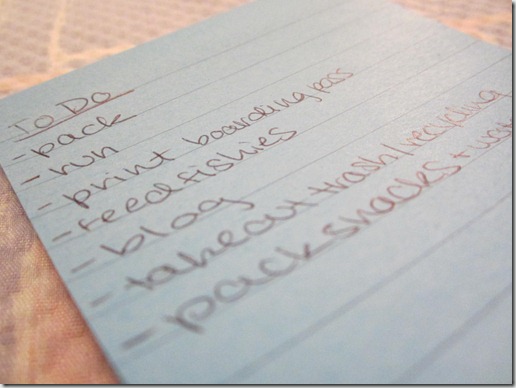 To Do
- pack
- run
- print boarding pass
- feed fishies
- blog
- take out trash/recycling
- pack snacks +